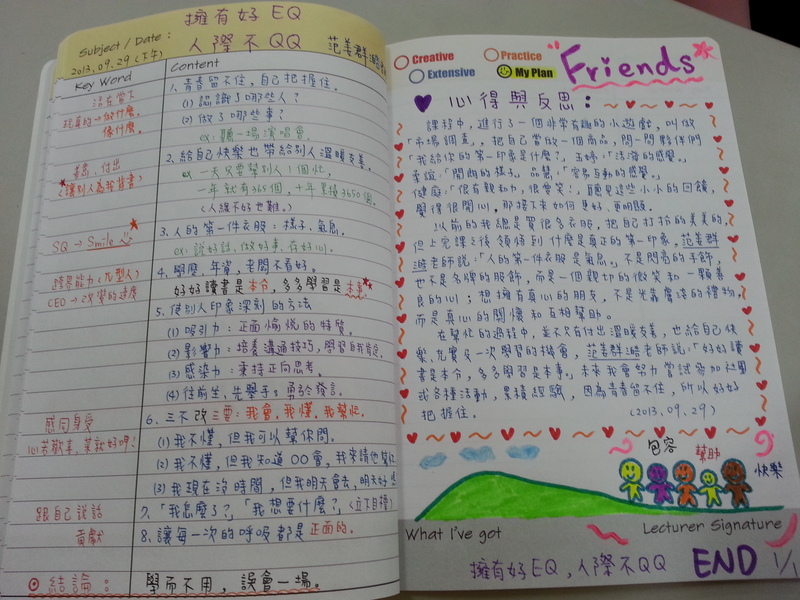 擁有好EQ
Subject / Date : 人際不QQ 范姜群澔老師
2013.09.29(下午)
Key Word
Content
活在當下
玩真的→做什麼,
像什麼。
付出
(讓別人為我背書)
SQ → Smile
跨界能力(九型人)
CEO → 改變的速度
感同身受
跟自己說話
貢獻
1. 青春留不住,自己把握住。
(1) 認識了哪些人?
(2) 做了哪些事?
ex: 聽一場演唱會
2. 給自己快樂也帶給別人溫暖友善。
ex 一天只要幫別人1個忙,
一年就有365個,十年累積3650個。
(人緣不好也難。)
3. 人的第一件衣服:樣子、氣息。
ex: 說好話、做好事、存好心。
4. 學歷、年資,老闆不看好。
好好讀書是本分,多多學習是本事。
5. 使別人印象深刻的方法
(1) 吸引力:正面愉悅的特質。
(2) 影響力:培養溝通技巧,學習自我肯定。
(3) 感染力:秉持正向思考。
(4) 往前坐,先舉手,勇於發言。
6. 三不改三要:我會、我懂、我幫忙。
(1) 我不懂,但我可以幫你問。
(2) 我不懂,但我知道OO會,我來請他幫忙
(3) 我現在沒時間,但我明天會去,明天好
7. 「我怎麼了?」「我想要什麼?」(立下目標)
8. 讓每一次的呼吸都是正面的。
⊙結論: 學而不用,誤會一場。
Creative
Practice
Extensive
My Plan
Friends
心得與反思:
課程中,進行了一個非常有趣的小遊戲,叫做
「市場調查」,把自己當做一個商品,問一問夥伴們
「我給你的第一印象是什麼?」,玉婷:「活潑的感覺。」
「悶悶的樣子。」品慧:「容易互動的感覺。」
健庭:「很有親和力,很愛笑!」聽見這些小小的回饋,
覺得很開心,那接下來如何更好、更明顯。
以前的我總是買很多衣服,把自己打扮的美美的,
但上完課之後領悟到什麼是真正的第一印象。范姜群
澔老師說:「人的第一件衣服是氣息」,不是閃亮的手飾,
也不是名牌的服飾,而是一個親切的微笑和一顆善
良的心;想擁有真心的朋友,不是光靠膚淺的禮物,
而是真心的關懷和互相幫助。
在幫忙的過程中,並不只有付出溫暖友善,也給自己快
樂,尤賞及一次學習的機會,范姜群澔老師說:「好好讀
書是本分,多多學習是本事。」未來我會努力嘗試參加社團
或各種活動,累積經驗,因為青春留不住,所以好好
把握住。 (2013.09.29)
包容
幫助
快樂
What I've got
Lecturer Signature
擁有好EQ,人際不QQ END 1/1